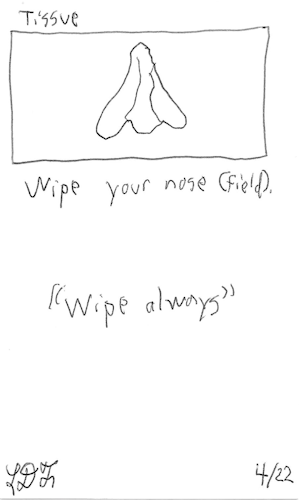 Tissue
Wipe your nose (field).
"Wipe always"
4/22